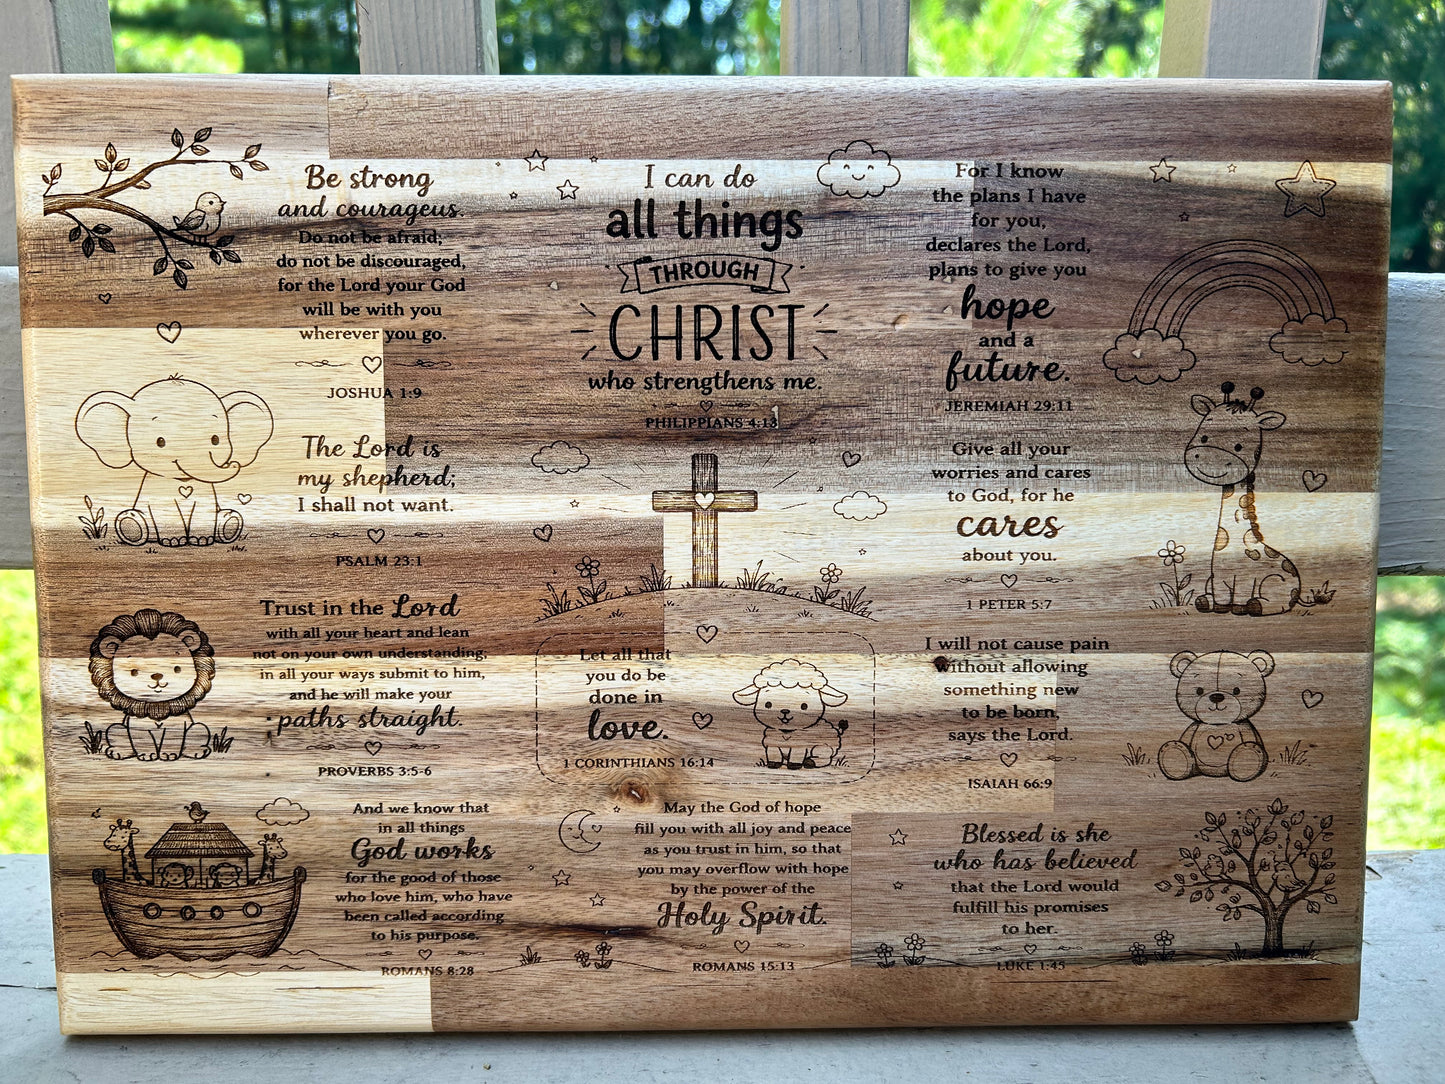 Be strong
and courageous.
Do not be afraid;
do not be discouraged,
for the Lord your God
will be with you
wherever you go.
JOSHUA 1:9
The Lord is
my shepherd;
I shall not want.
PSALM 23:1
Trust in the Lord
with all your heart and lean
not on your own understanding;
in all your ways submit to him,
and he will make your
paths straight.
PROVERBS 3:5-6
And we know that
in all things
God works
for the good of those
who love him, who have
been called according
to his purpose.
ROMANS 8:28
I can do
all things
THROUGH
CHRIST
who strengthens me.
PHILIPPIANS 4:13
Let all that
you do be
done in
love.
1 CORINTHIANS 16:14
May the God of hope
fill you with all joy and peace
as you trust in him, so that
you may overflow with hope
by the power of the
Holy Spirit.
ROMANS 15:13
For I know
the plans I have
for you,
declares the Lord,
plans to give you
hope
and a
future.
JEREMIAH 29:11
Give all your
worries and cares
to God, for he
cares
about you.
1 PETER 5:7
I will not cause pain
without allowing
something new
to be born,
says the Lord.
ISAIAH 66:9
Blessed is she
who has believed
that the Lord would
fulfill his promises
to her.
LUKE 1:45